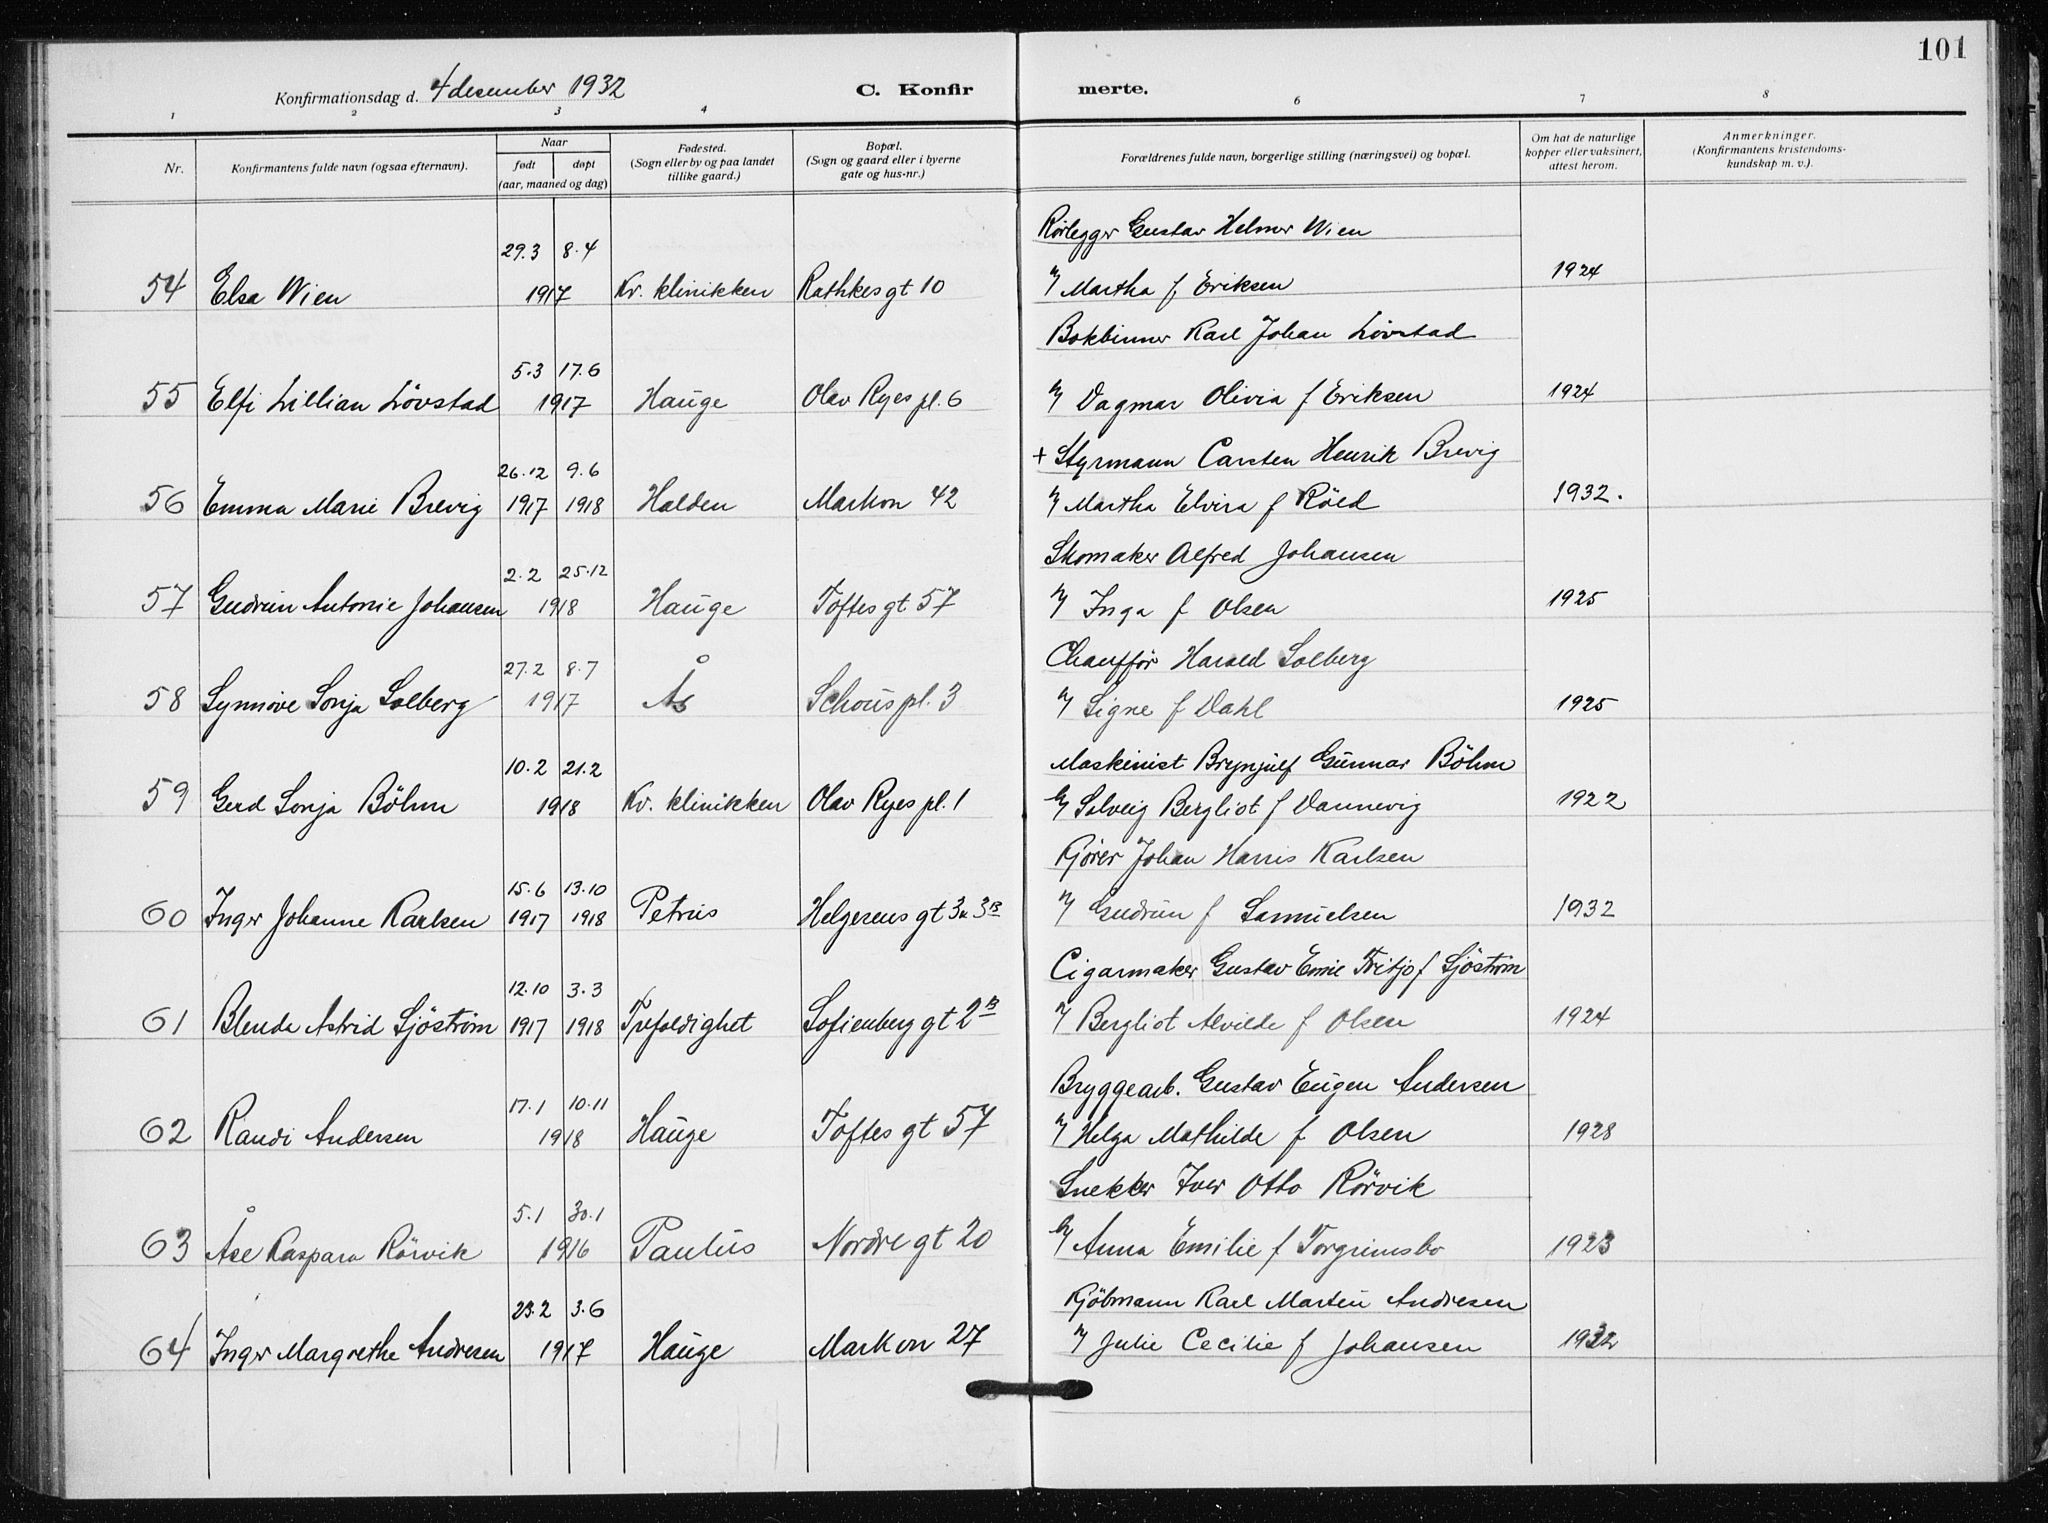 101
Konfirmationsdag d. 4 desember 1932 C. Konfir merte.
1 2 3 4 6 7 8
Nr. Konfirmantens fulde navn (ogsaa efternavn). Naar født døpt (aar, maaned og dag) Fødested. (Sogn eller by og paa landet tillike gaard.) Bopæl. (Sogn og gaard eller i byerne gate og hus-nr.) Forældrenes fulde navn, borgerlige stilling (næringsvei) og bopæl. Om hat de naturlige kopper eller vaksinert, attest herom. Anmerkninger. (Konfirmantens kristendoms-kundskap m. v.).
Rörlegger Gustav Helmer Wien
29.3 8.4
54 Elsa Wien 1917 Kv. klinikken Rathkes gt 10 Martha f. Eriksen 1924
Bokbinner Karl Johan Lövstad
5.3 17.6
55 Elfi Lillian Lövstad 1917 Hauge Olav Ryes pl. 6 Dagmar Olivia f Eriksen 1924
+ Styrmann Carsten Henrik Brevig
26.12 9.6
56 Emma Marie Brevig 1917 1918 Halden Markvn 42 Martha Elvira f Röed 1932.
Skomaker Alfred Johansen
2.2 25.12
57 Gudrun Antonie Johansen 1918 Hauge Toftes gt 57 Inga f Olsen 1925
Chaufför Harald Solberg
27.2 8.7
58 Synnöve Sonja Solberg 1917 Ås Schous pl. 3 Signe f Dahl 1925
Maskinist Brynjulf Gunnar Böhm
10.2 21.2
59 Gerd Sonja Böhm 1918 Kv. klinikken Olav Ryes pl. 1 Solveig Bergliot f Dannevig 1922
Kjörer Johan Harris Karlsen
15.6 13.10
60 Inger Johanne Karlsen 1917 1918 Petrus Helgesens gt Gudrun f Samuelsen 1932
Cigarmaker Gustav Emil Fritjof Sjöström
12.10 3.3
61 Blenda Astrid Sjöström 1917 1918 Trefoldighet Sofienberg gt 2B Bergliot Alvilde f Olsen 1924
Bryggearb. Gustav Eugen Andersen
17.1 10.11
62 Randi Andersen 1918 Hauge Toftes gt 57 Helga Mathilde f Olsen 1928
Snekker Iver Otto Rörvik
5.1 30.1
63 Åse Kaspara Rörvik 1916 Paulus Nordre gt 20 Anna Emilie f Torgrimsbo 1923
Kjöbmann Karl Martin Andresen
23.2 3.6
64 Inger Margrethe Andresen 1917 Hauge Markvn 27 Julie Cecilie f Johansen 1932